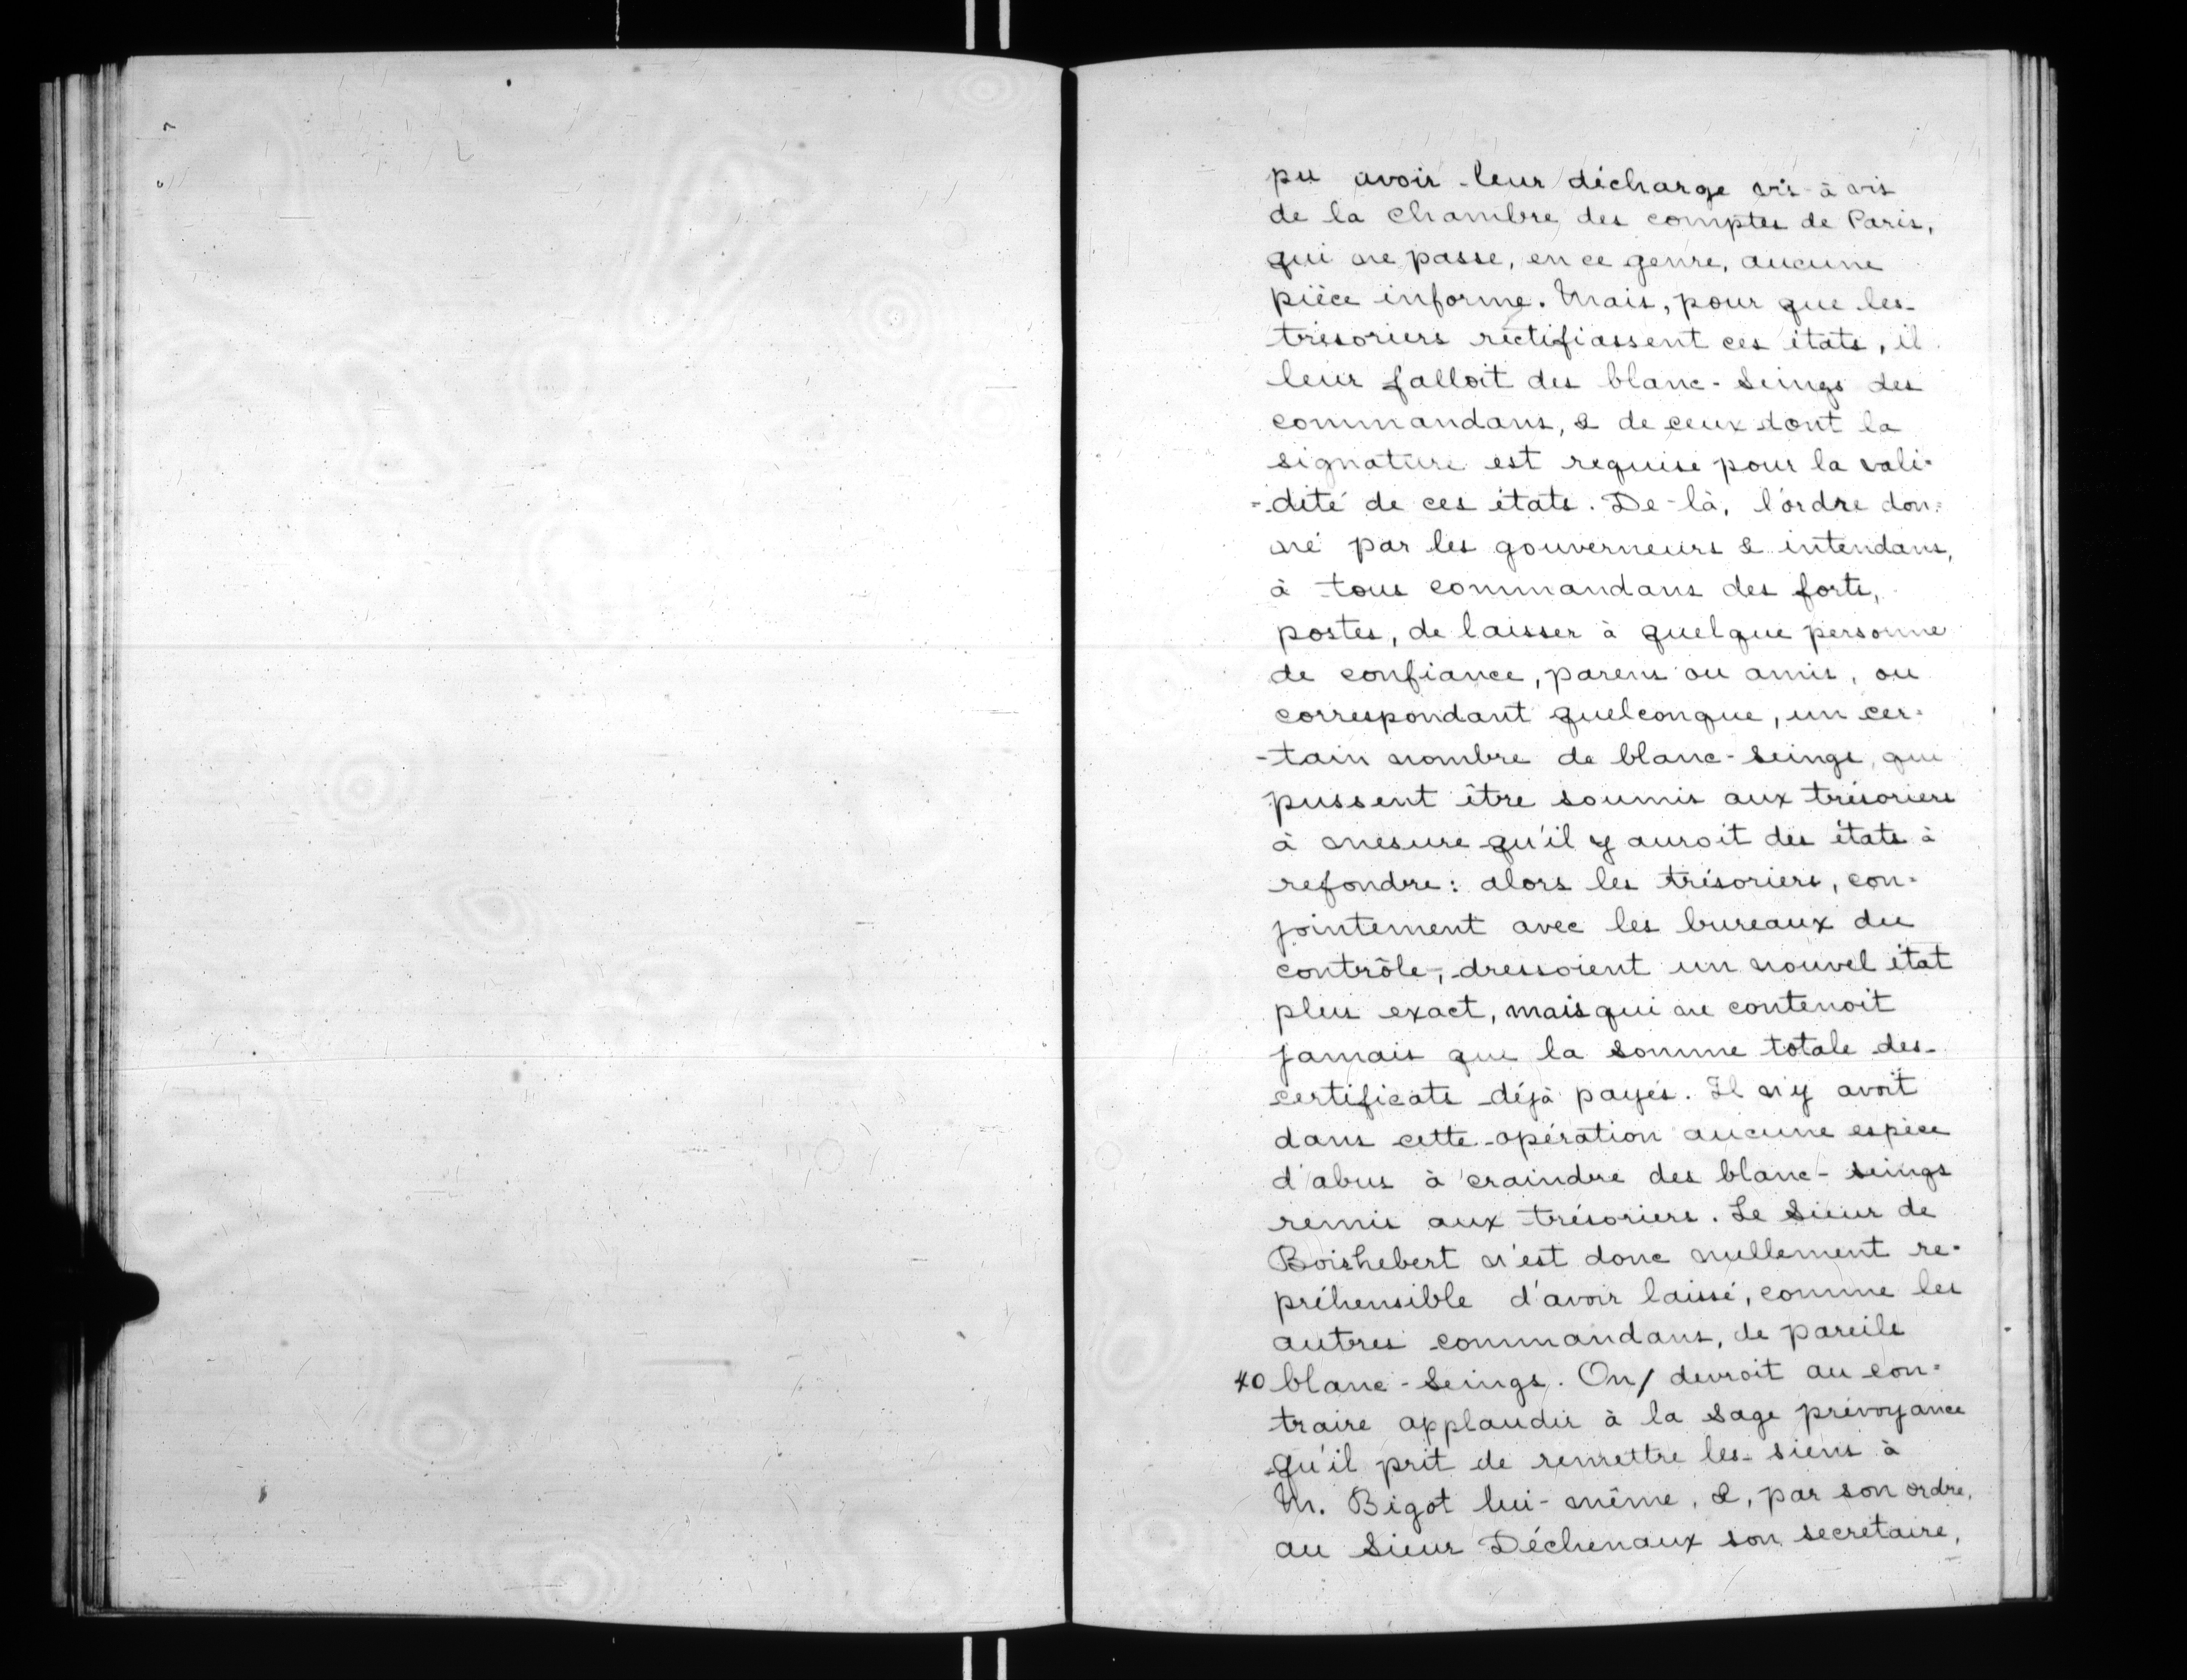 pu avoir leur décharge vis-à vis
de la Chambre des comptes de Paris,
qui ne passe, en ce genre, aucune
pièce informe. Mais, pour que les
trésoriers rectifiassent ces états, il
leur falloit des blanc-seings des
commandans, & de ceux dont la
signature est requise pour la vali-
-dité de ces états. De-là, l'ordre don-
né par les gouverneurs & intendans,
à tous commandans des forts,
postes, de laisser à quelque personne
de confiance, parens ou amis, ou
correspondant quelconque, un cer-
-tain nombre de blanc-seings, qui
pussent être soumis aux trésoriers
à mesure qu'il y auroit des états à
refondre: alors les trésoriers, con-
jointement avec les bureaux du
contrôle, dressoient un nouvel état
plus exact, mais qui ne contenoit
jamais que la somme totale des
certificats déjà payés. Il n'y avoit
dans cette opération aucune espèce
d'abus à craindre des blanc-seings
remis aux trésoriers. Le Sieur de
Boishebert n'est donc nullement re-
préhensible d'avoir laissé, comme les
autres commandans, de pareils
40 blanc-seings. On/ devroit au con-
traire applaudir à la sage prévoyance
qu'il prit de remettre les siens à
M. Bigot lui-même, &, par son ordre,
au Sieur Déchenaux son secrétaire,